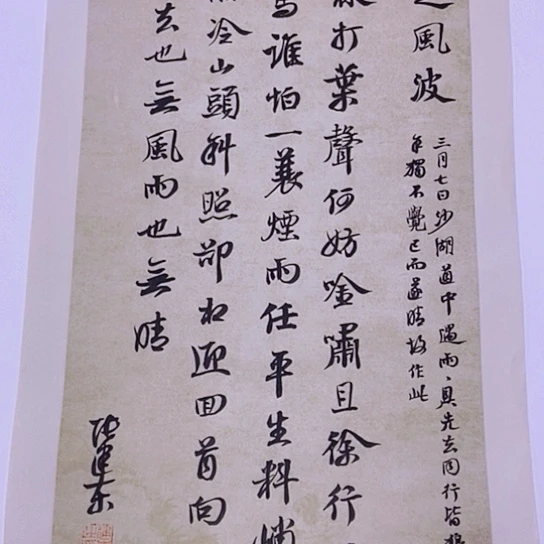 風波
三月七日沙湖道中遇雨、具先去同行皆狼
余獨不覺已而遂晴故作此
林打葉聲何妨吟嘯且徐行
馬誰怕一蓑煙雨任平生料峭
冷山頭斜照卻相迎回首向
去也無風雨也無晴